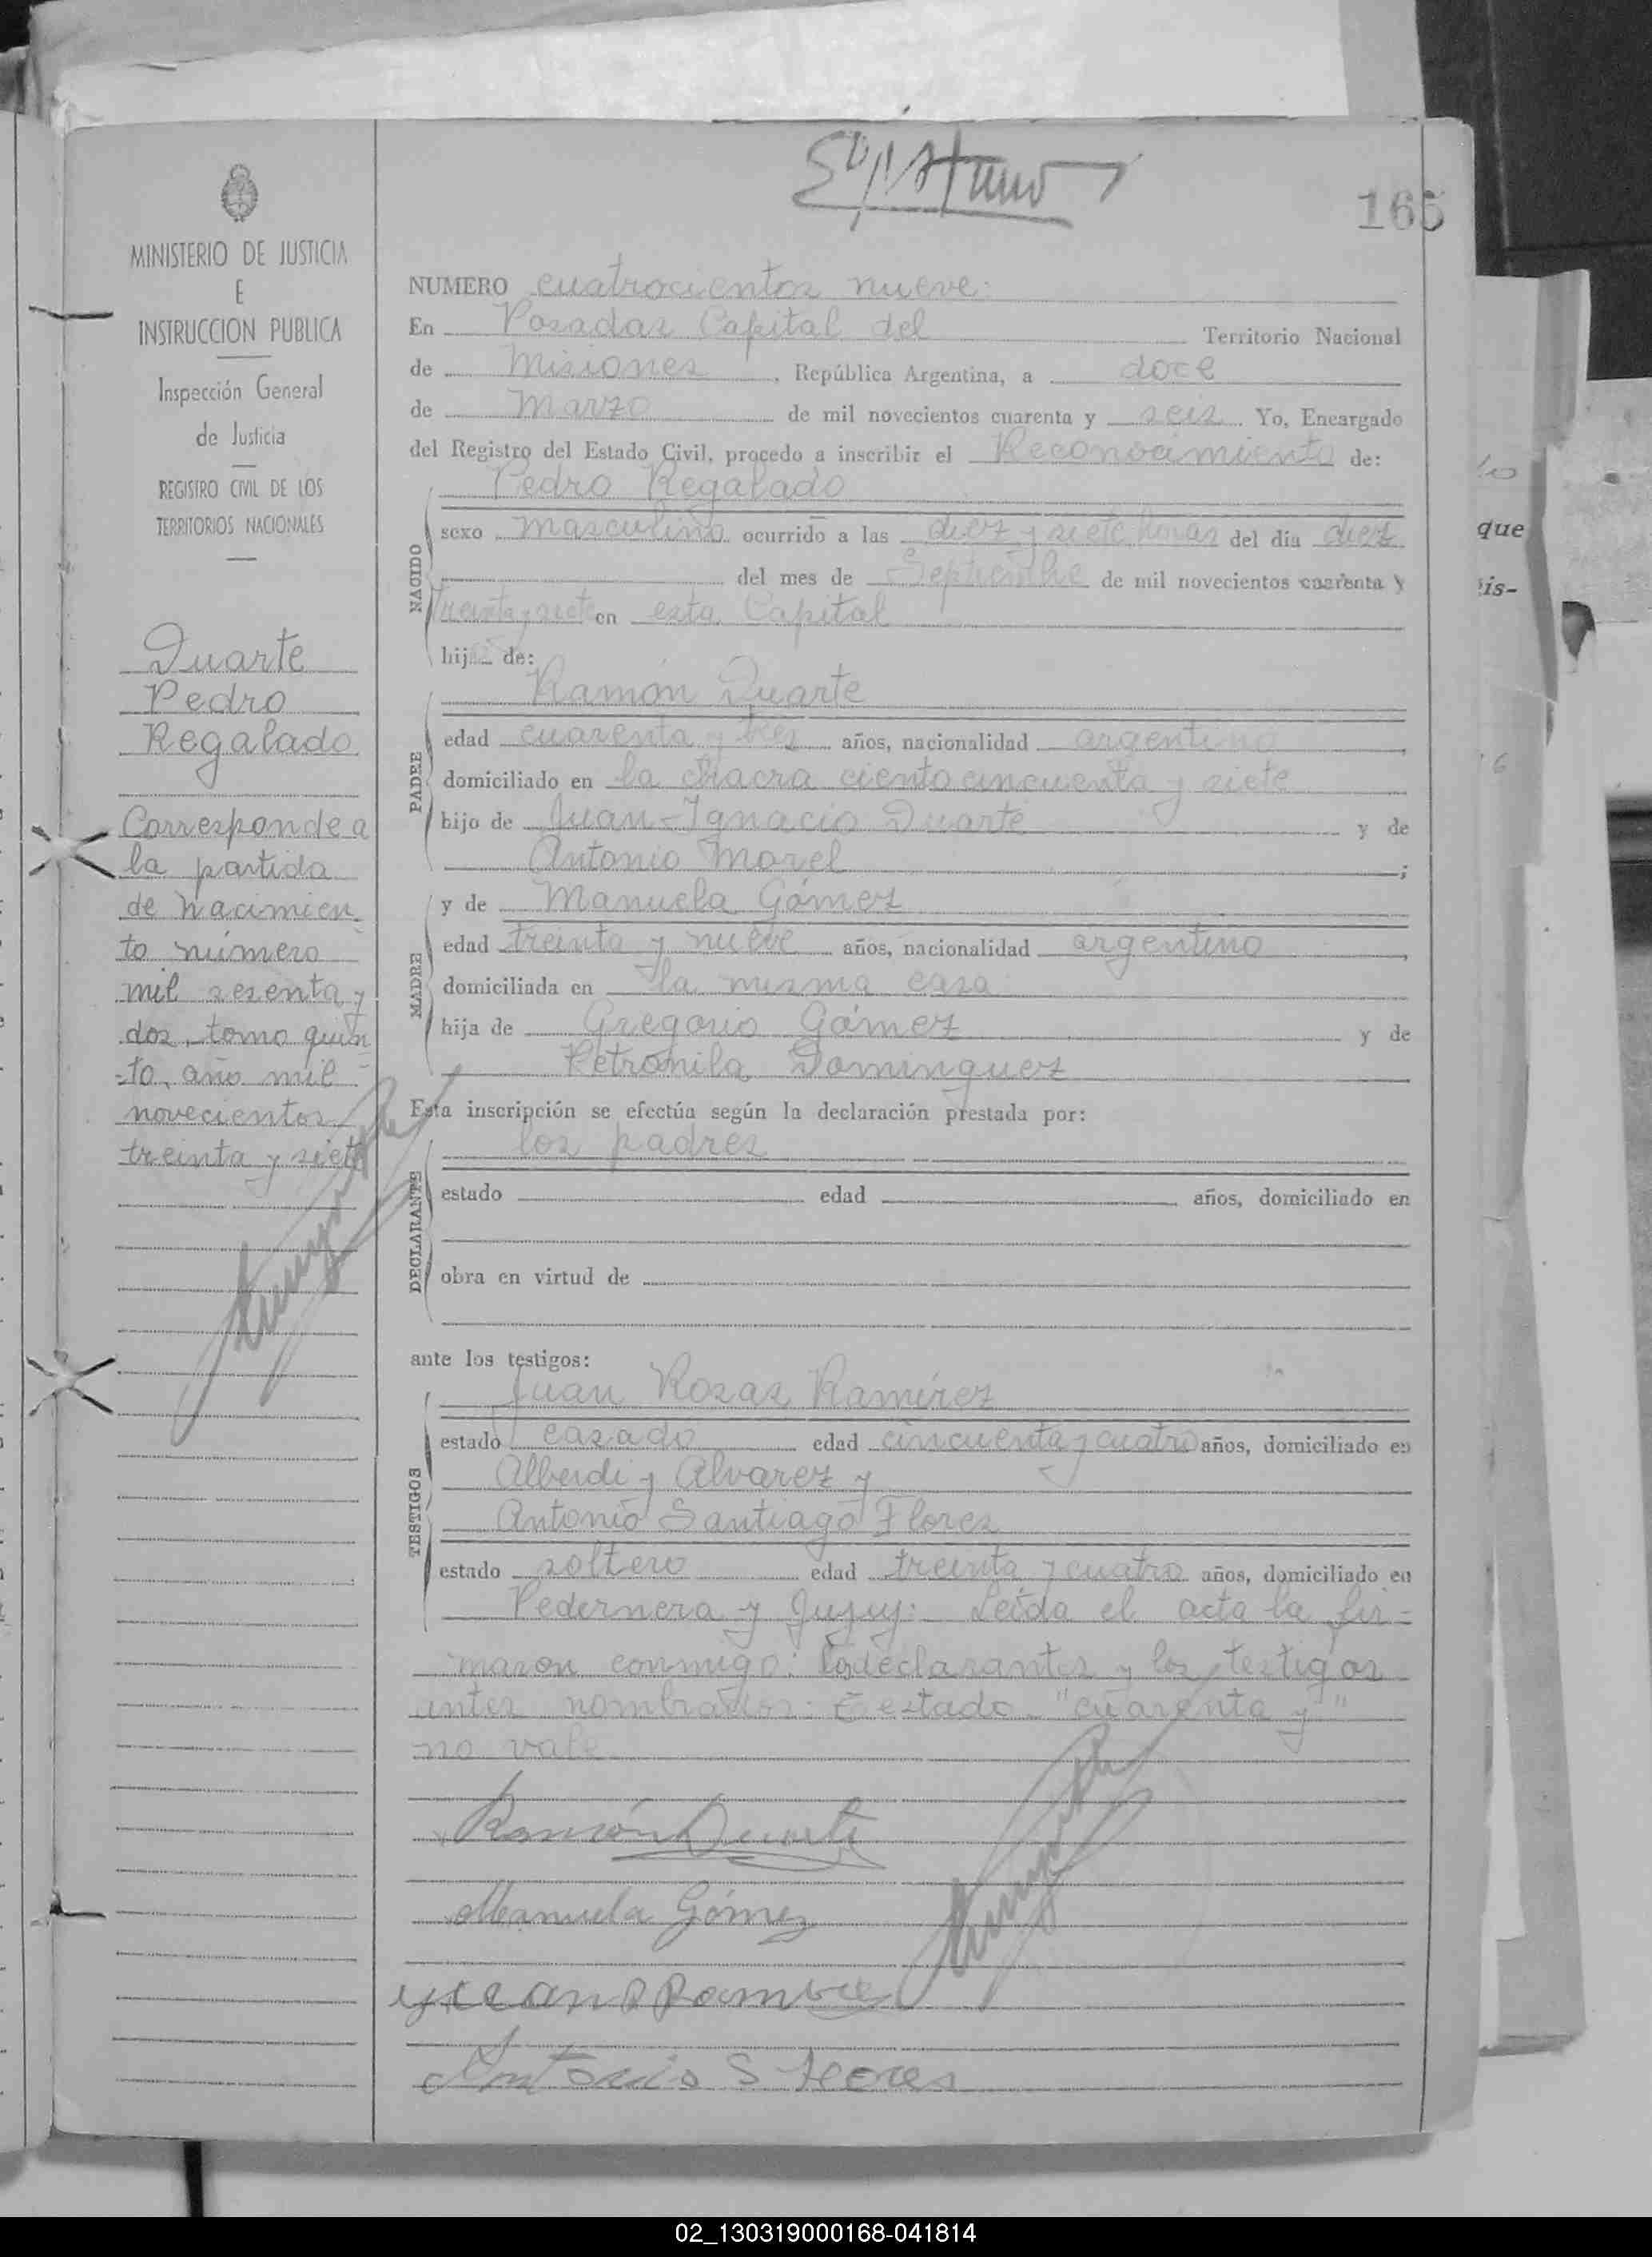 165
MINISTERIO DE JUSTICIA
E
INSTRUCCION PUBLICA
Inspección General
de Justicia
REGISTRO CIVIL DE LOS
TERRITORIOS NACIONALES
Duarte
Pedro
Regalado
Corresponde a
la partida
de nacimien
to número
mil sesenta y
dos, tomo quin
-to, año mil
novecientos
treinta y siete
NUMERO cuatrocientos nueve:
En Posadas Capital del Territorio Nacional
de Misiones, República Argentina, a doce
de Marzo de mil novecientos cuarenta y seis Yo, Encargado
del Registro del Estado Civil, procedo a inscribir el Reconocimiento de:
Pedro Regalado
NACIDO
sexo masculino ocurrido a las diez y siete horas del día diez
del mes de Septiembre de mil novecientos cuarenta y
treinta y siete en esta Capital
hij de:
Ramón Duarte
PADRE
edad cuarenta y tres años, nacionalidad argentino,
domiciliado en la chacra ciento cincuenta y siete
hijo de Juan-Ignacio Duarte y de
Antonio Morel;
y de Manuela Gómez
MADRE
edad treinta y nueve años, nacionalidad argentino,
domiciliada en la misma casa
hija de Gregorio Gómez y de
Petronila Dominguez
Esta inscripción se efectúa según la declaración prestada por:
los padres
DECLARANTE
estado edad años, domiciliado en
obra en virtud de
ante los testigos:
Juan Rosas Ramírez
TESTIGOS
estado casado edad cincuenta y cuatro años, domiciliado en
Alberdi y Alvarez y
Antonio Santiago Flores
estado soltero edad treinta y cuatro años, domiciliado en
Pedernera y Jujuy: Leida el acta la fir=
maron conmigo: los declarantes y los testigos
antes nombrados: Testado "cuarenta y"
no vale
Ramón Duarte
Manuela Gómez
Juan R Ramirez
Antonio S Flores
que
is-
02_130319000168-041814